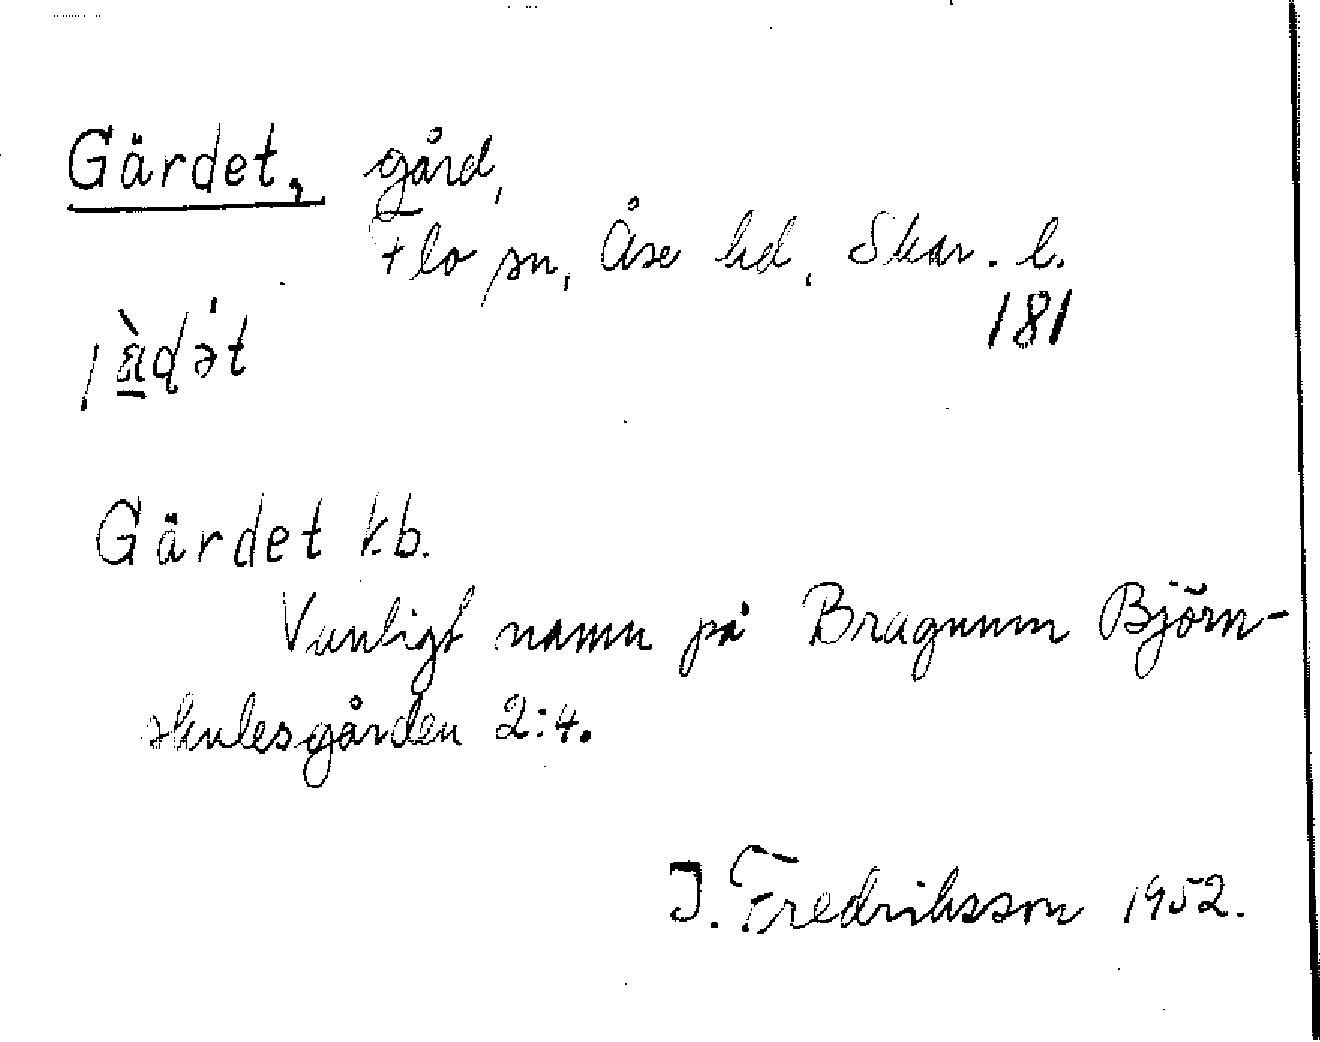 Gärdet, gård,
Flo sn, Åse hd, Skar. l.
181
Gärdet kb.
Vanligt namn på Bragnum Björn-
skulesgården 2:4.
J. Fredriksson 1952.